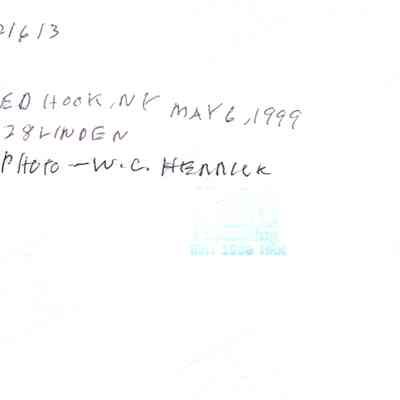 21613
ED HOOK, NY MAY 6, 1999
28 LINDEN
PHOTO — W. C. HERRICK